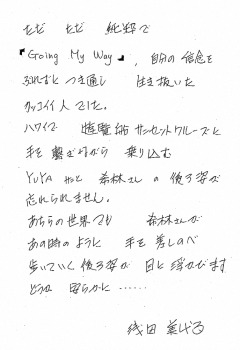 ただ ただ 純粋で
『Going My Way』、自分の信念を
ぶれずに つき通し 生き抜いた
カッコイイ人でした。
ハワイで 遊覧船サンセットクルーズに
手を繋ぎながら 乗り込む
YUYA さんと 希林さんの後ろ姿が
忘れられません。
あちらの世界でも 希林さんが
あの時のように 手を差しのべ
歩いていく後ろ姿が 目に浮かびます
どうか 安らかに……
浅田 美代子